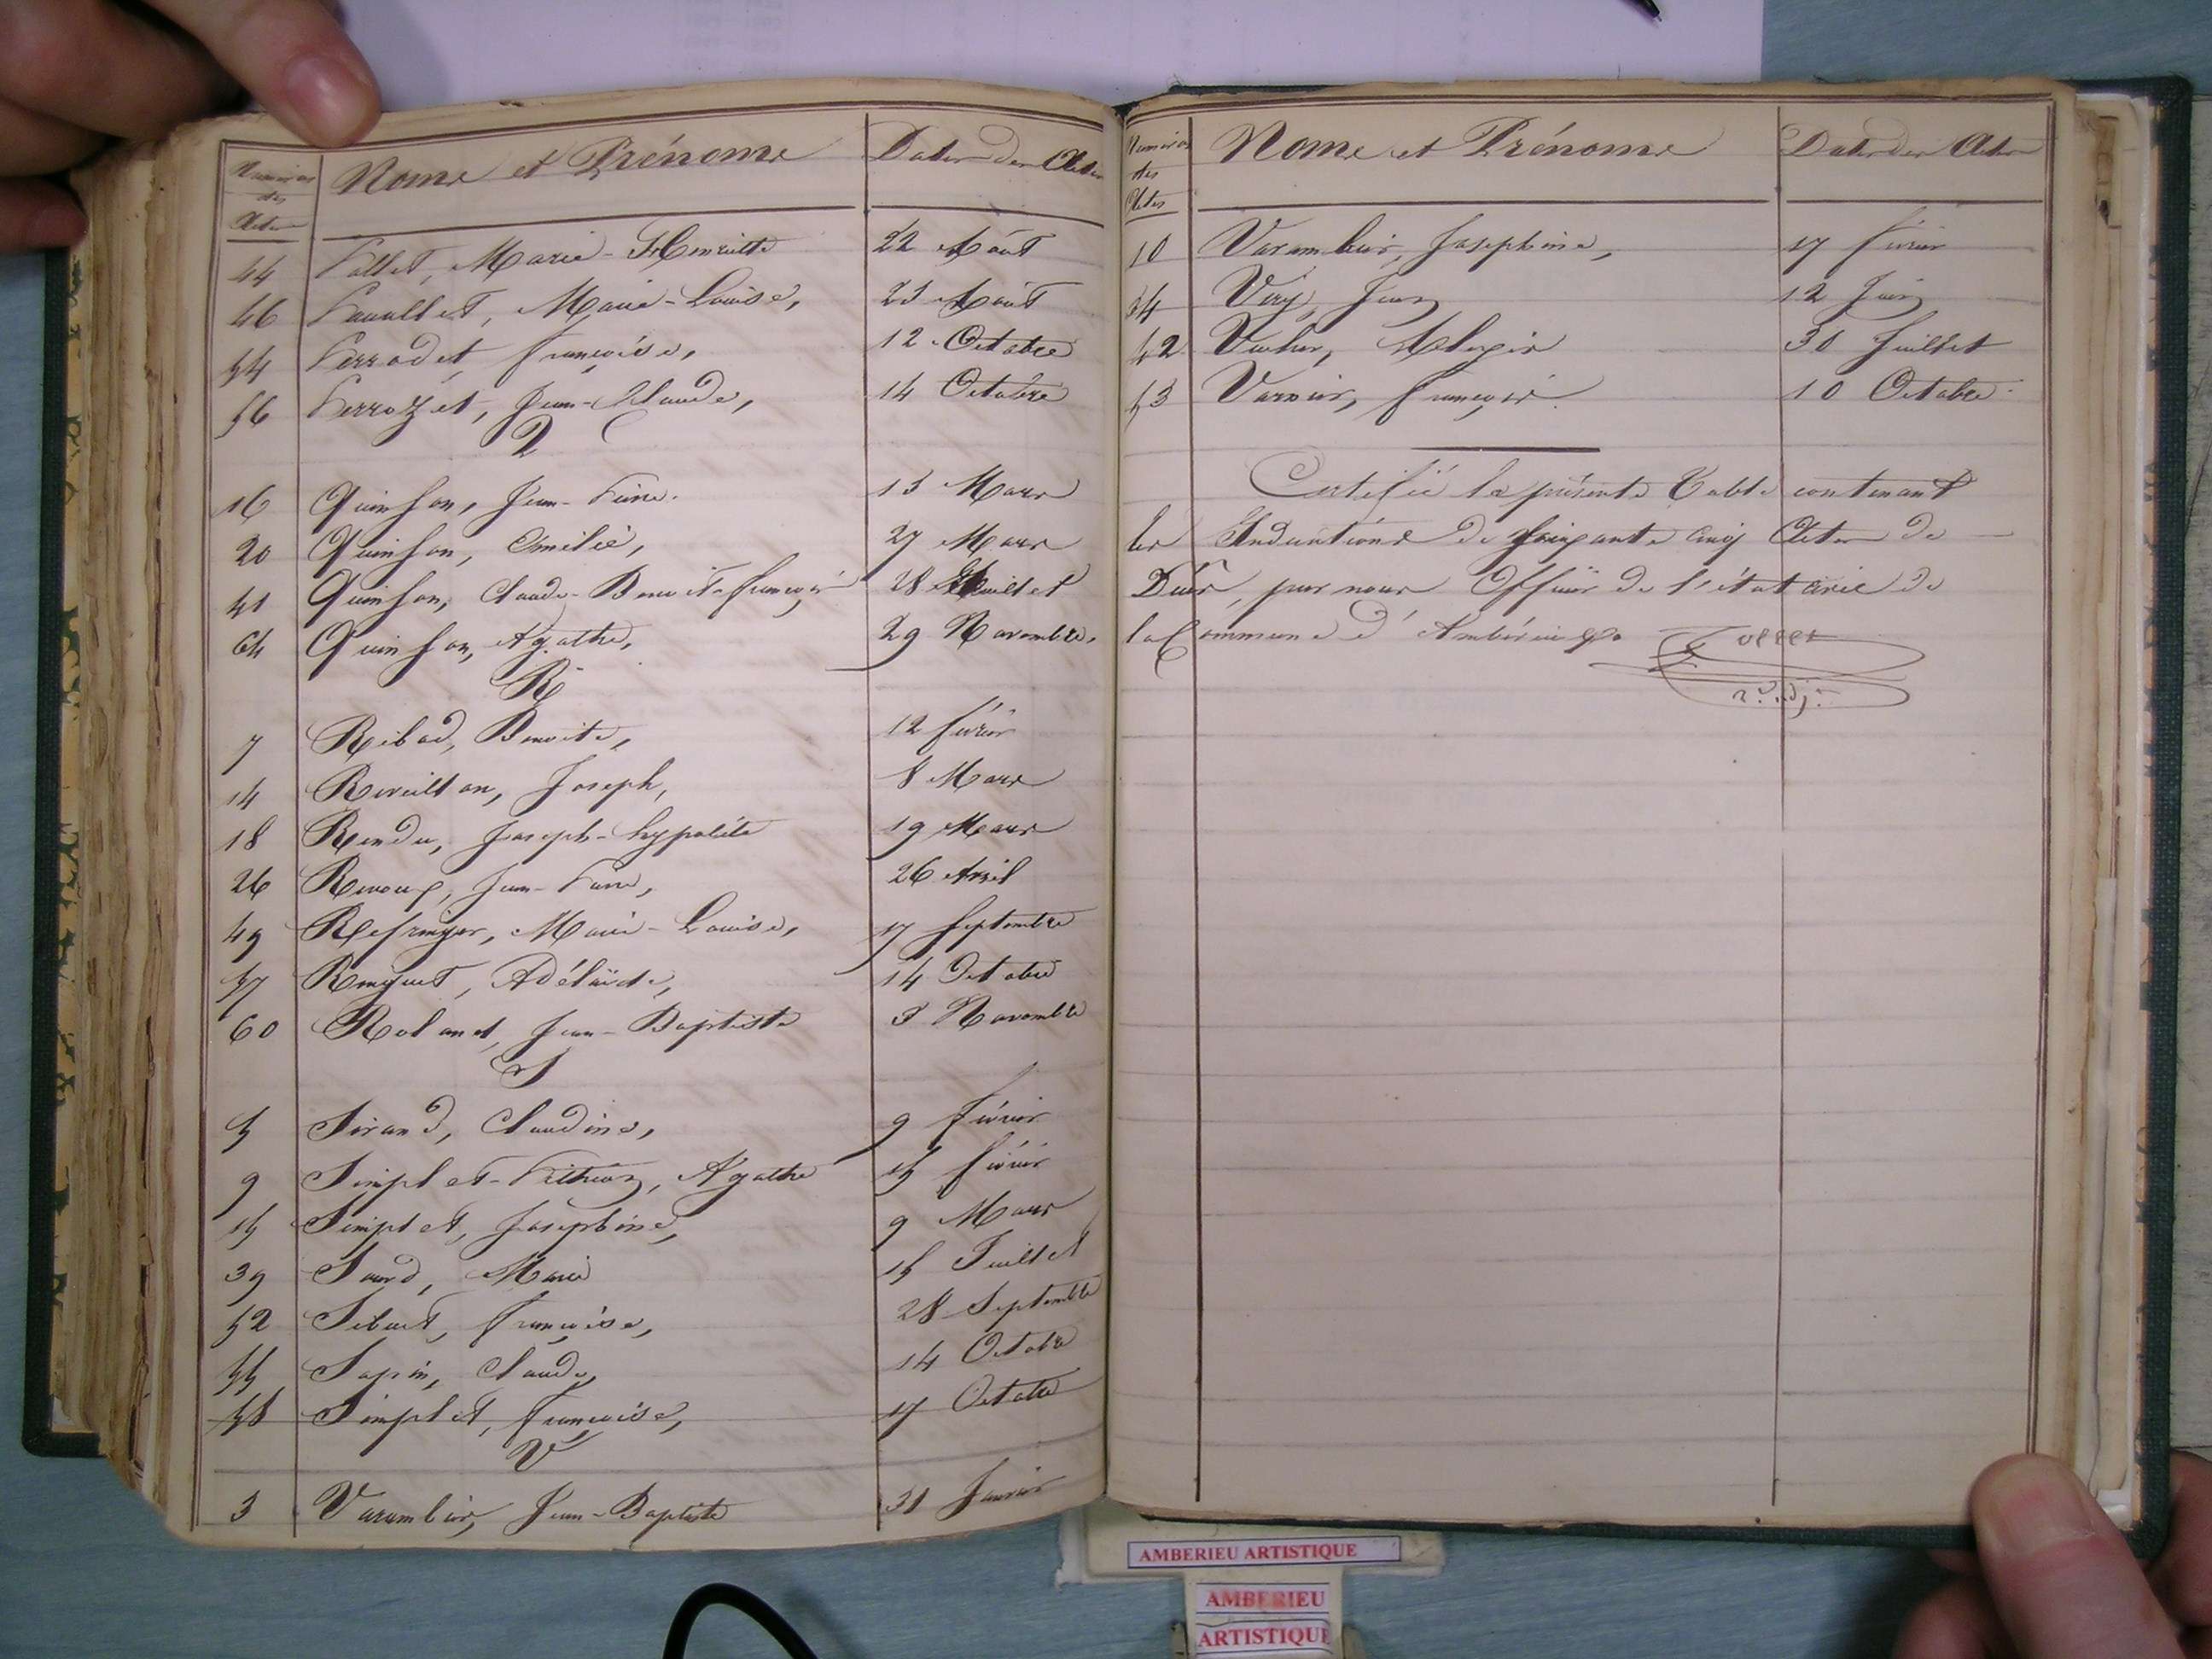 Numéros des Actes Noms et Prénoms Dates des Actes
44 Pallet, Marie-Henriette 22 Août
46 Marie-Louise, 23 Août
54 Perrodet, françoise, 12 Octobre
56 Perrozet, Jean-Claude, 14 Octobre
Q
16 Quinson, Jean-Pierre. 13 Mars
20 Quinson, Emilie, 27 Mars
41 Quinson, Claude-Benoit-françois 28 Juillet
64 Quinson, Agathe, 29 Novembre,
R
7 Ribod, Benoite, 12 février
14 Joseph, 8 Mars
18 Rendu, Joseph-hyppolite 19 Mars
26 Jean-Pierre, 26 Avril
49 Marie-Louise, 17 Septembre
57 Adélaïde, 14 Octobre
60 Roland, Jean-Baptiste 3 Novembre
S
5 Sirand, Claudine, 9 février
9 Simplet- Agathe 15 février
15 Simplet, Joséphine, 9 Mars
39 Marie 15 Juillet
52 Sibuet, françoise, 28 Septembre
55 Sapin, Claude, 14 Octobre
58 Simplet, françoise, 17 Octobre
V
3 Varambier, Jean-Baptiste 31 Janvier
Numéros des Actes Noms et Prénoms Dates des Actes
10 Varambier, Josephine, 17 février
34 Jean 12 Juin
42 30 Juillet
53 françois. 10 Octobre.
Certifié la présente Table contenant
les Indications de soixante cinq Actes de
Décès, par nous Officier de l'état civil de
la Commune d'Ambérieu
AMBERIEU ARTISTIQUE
AMBERIEU
ARTISTIQUE